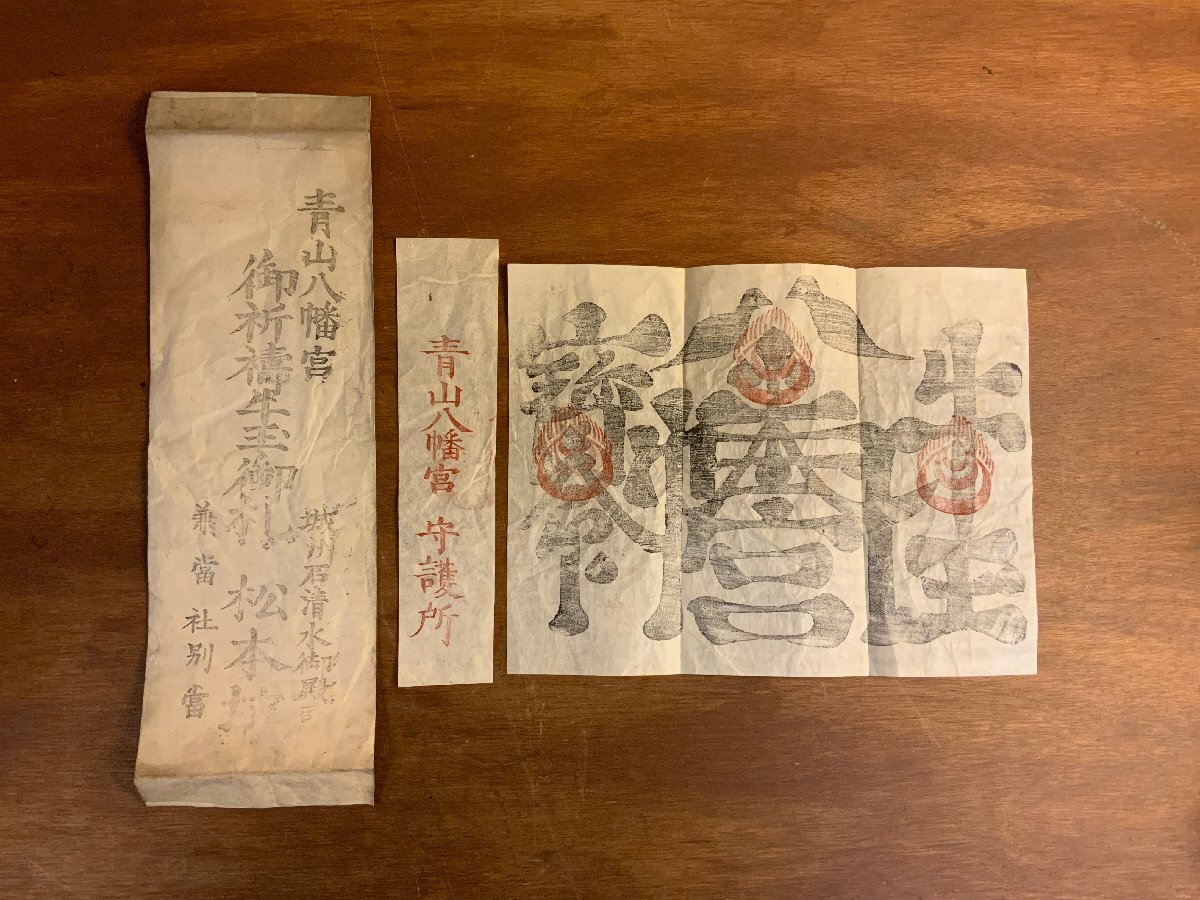 青山八幡宮
城州石清水御殿司
御祈禱牛玉御札 松本坊
兼當社別當
青山八幡宮 守護所
牛王
寳印